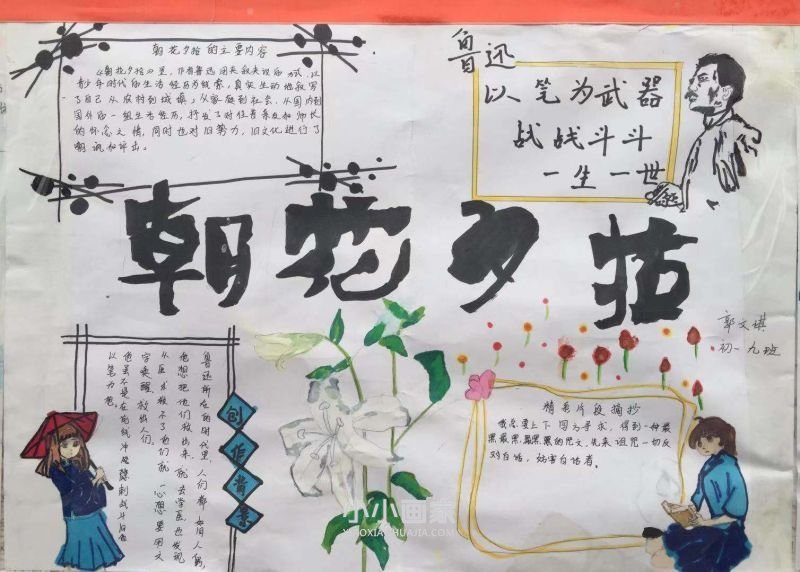 朝花夕拾的主要内容
《朝花夕拾》里,作者鲁迅用夹叙夹议的方式,以
青少年时代的生活经历为线索,真实生动地叙写
了自己从农村到城镇,从家庭到社会,从国内到
国外的一组生活经历,抒发了对往昔亲友和师长
的怀念之情,同时也对旧势力,旧文化进行了
嘲讽和评击。
鲁迅
以笔为武器
战战斗斗
一生一世
朝花夕拾
郭文琪
初一九班
创作背景
鲁迅所在的时代里,人们都如同人偶,
他想把他们救出来,就去学医,也发现
从医生救不了他们就一心想要用文
字唤醒,救出人们。
他虽不是在前线冲破
以笔为枪。
精美片段摘抄
我总要上下四方寻求,得到一种最
黑最黑,最黑的咒文,先来诅咒一切反
对白话,妨害白话者。
小小画家
XIAOXIAOHUAJIA.COM